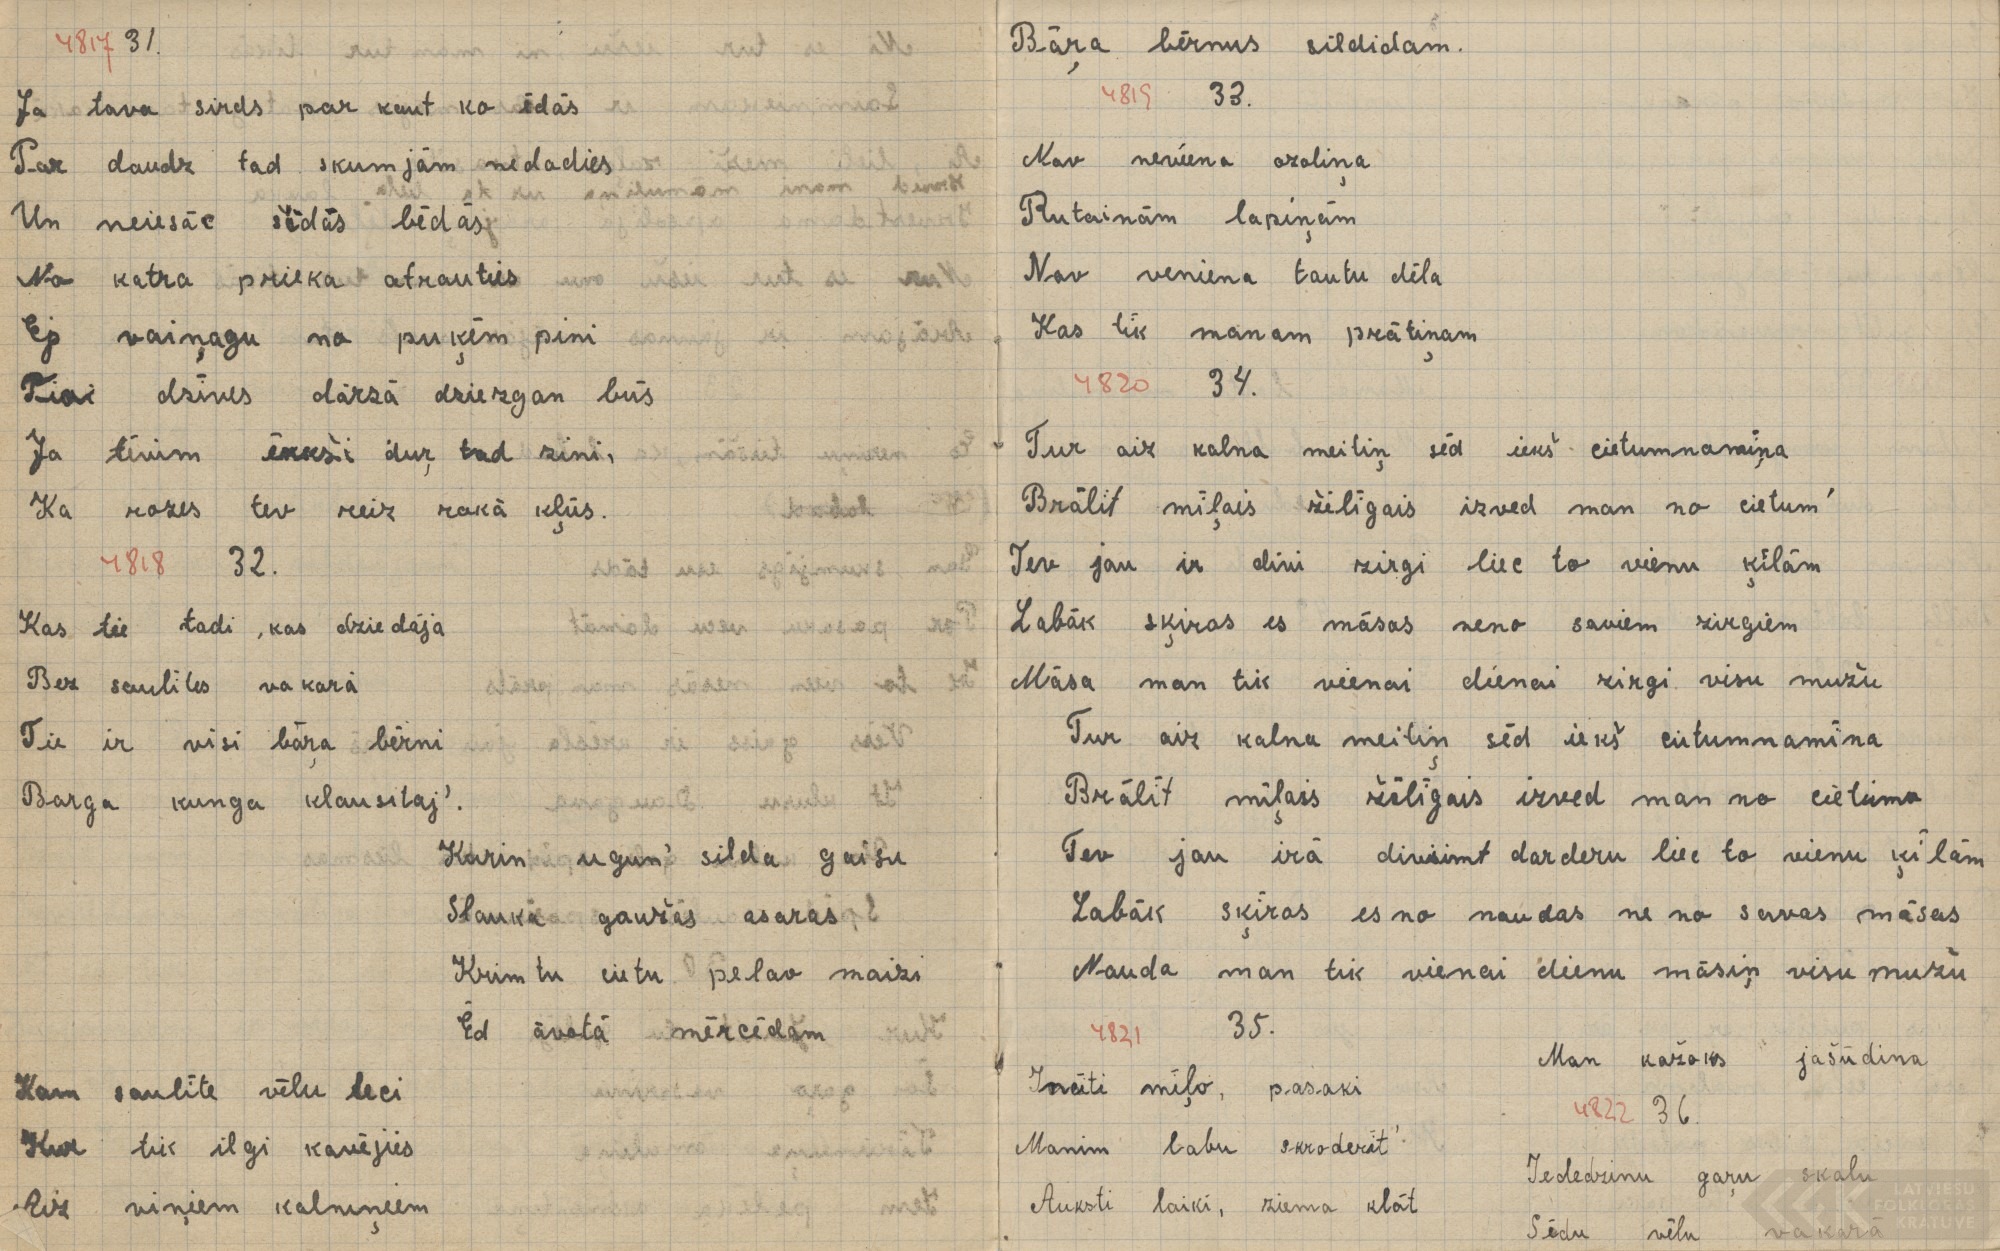 4817 31.
Ja tava sirds par kaut ko ēdās
Par daudz tad skumjām nedadies
Un neiesāc šēdās bēdās
No katra prieka atrauties
Ej vaiņagu no puķēm pini
dzīves dārzā dziezgan būs
Ja tēvim ērkši duŗ tad zini,
Ka rozes tev reiz rokā kļūs.
4818 32.
Kas tie tadi, kas dziedāja
Bez saulītes vakarā
Tie ir visi bāŗa bērni
Barga kunga klausitaj'.
Kurin ugun' silda gaisu
Slaukā gaužās asaras
Krimtu cietu pelav maizi
Ēd āvotā mērcēdam
Kam saulīte vēlu leci
Kur tik ilgi kavējiēs
Aiz viņiem kalniņiem
Bāŗa bērnus sildidam.
4819 33.
Nav neviena ozoliņa
Rutainām lapiņām
Nav veniena tautu dēla
Kas tik manam prātiņam
4820 34.
Tur aiz kalna meitiņ sēd iekš cietumnamiņa
Brālit mīļais žēlīgais izved man no cietum'
Tev jau ir divi zirgi liec to vienu ķīlām
Labāk sķiros es māsas neno saviem zirgiem
Māsa man tik vienai dienai zirgi visu mužu
Tur aiz kalna meitiņ sēd iekš cietumnamīna
Brālīt mīļais žēlīgais izved man no cietuma
Tev jau irā divsimt darderu liec to vienu ķīlām
Labāk sķiros es no naudas ne no savas māsas
Nauda man tik vienai dienu māsiņ visu mužu
4821 35.
mīļo, pasaki
Manim labu skroderīt'
Auksti laiki, ziema klāt
Man kažoks jašūdina
4822 36.
Iededzinu gaŗu skalu
Sēdu vēlu vakarā
LATVIEŠU
FOLKLORAS
KRĀTUVE